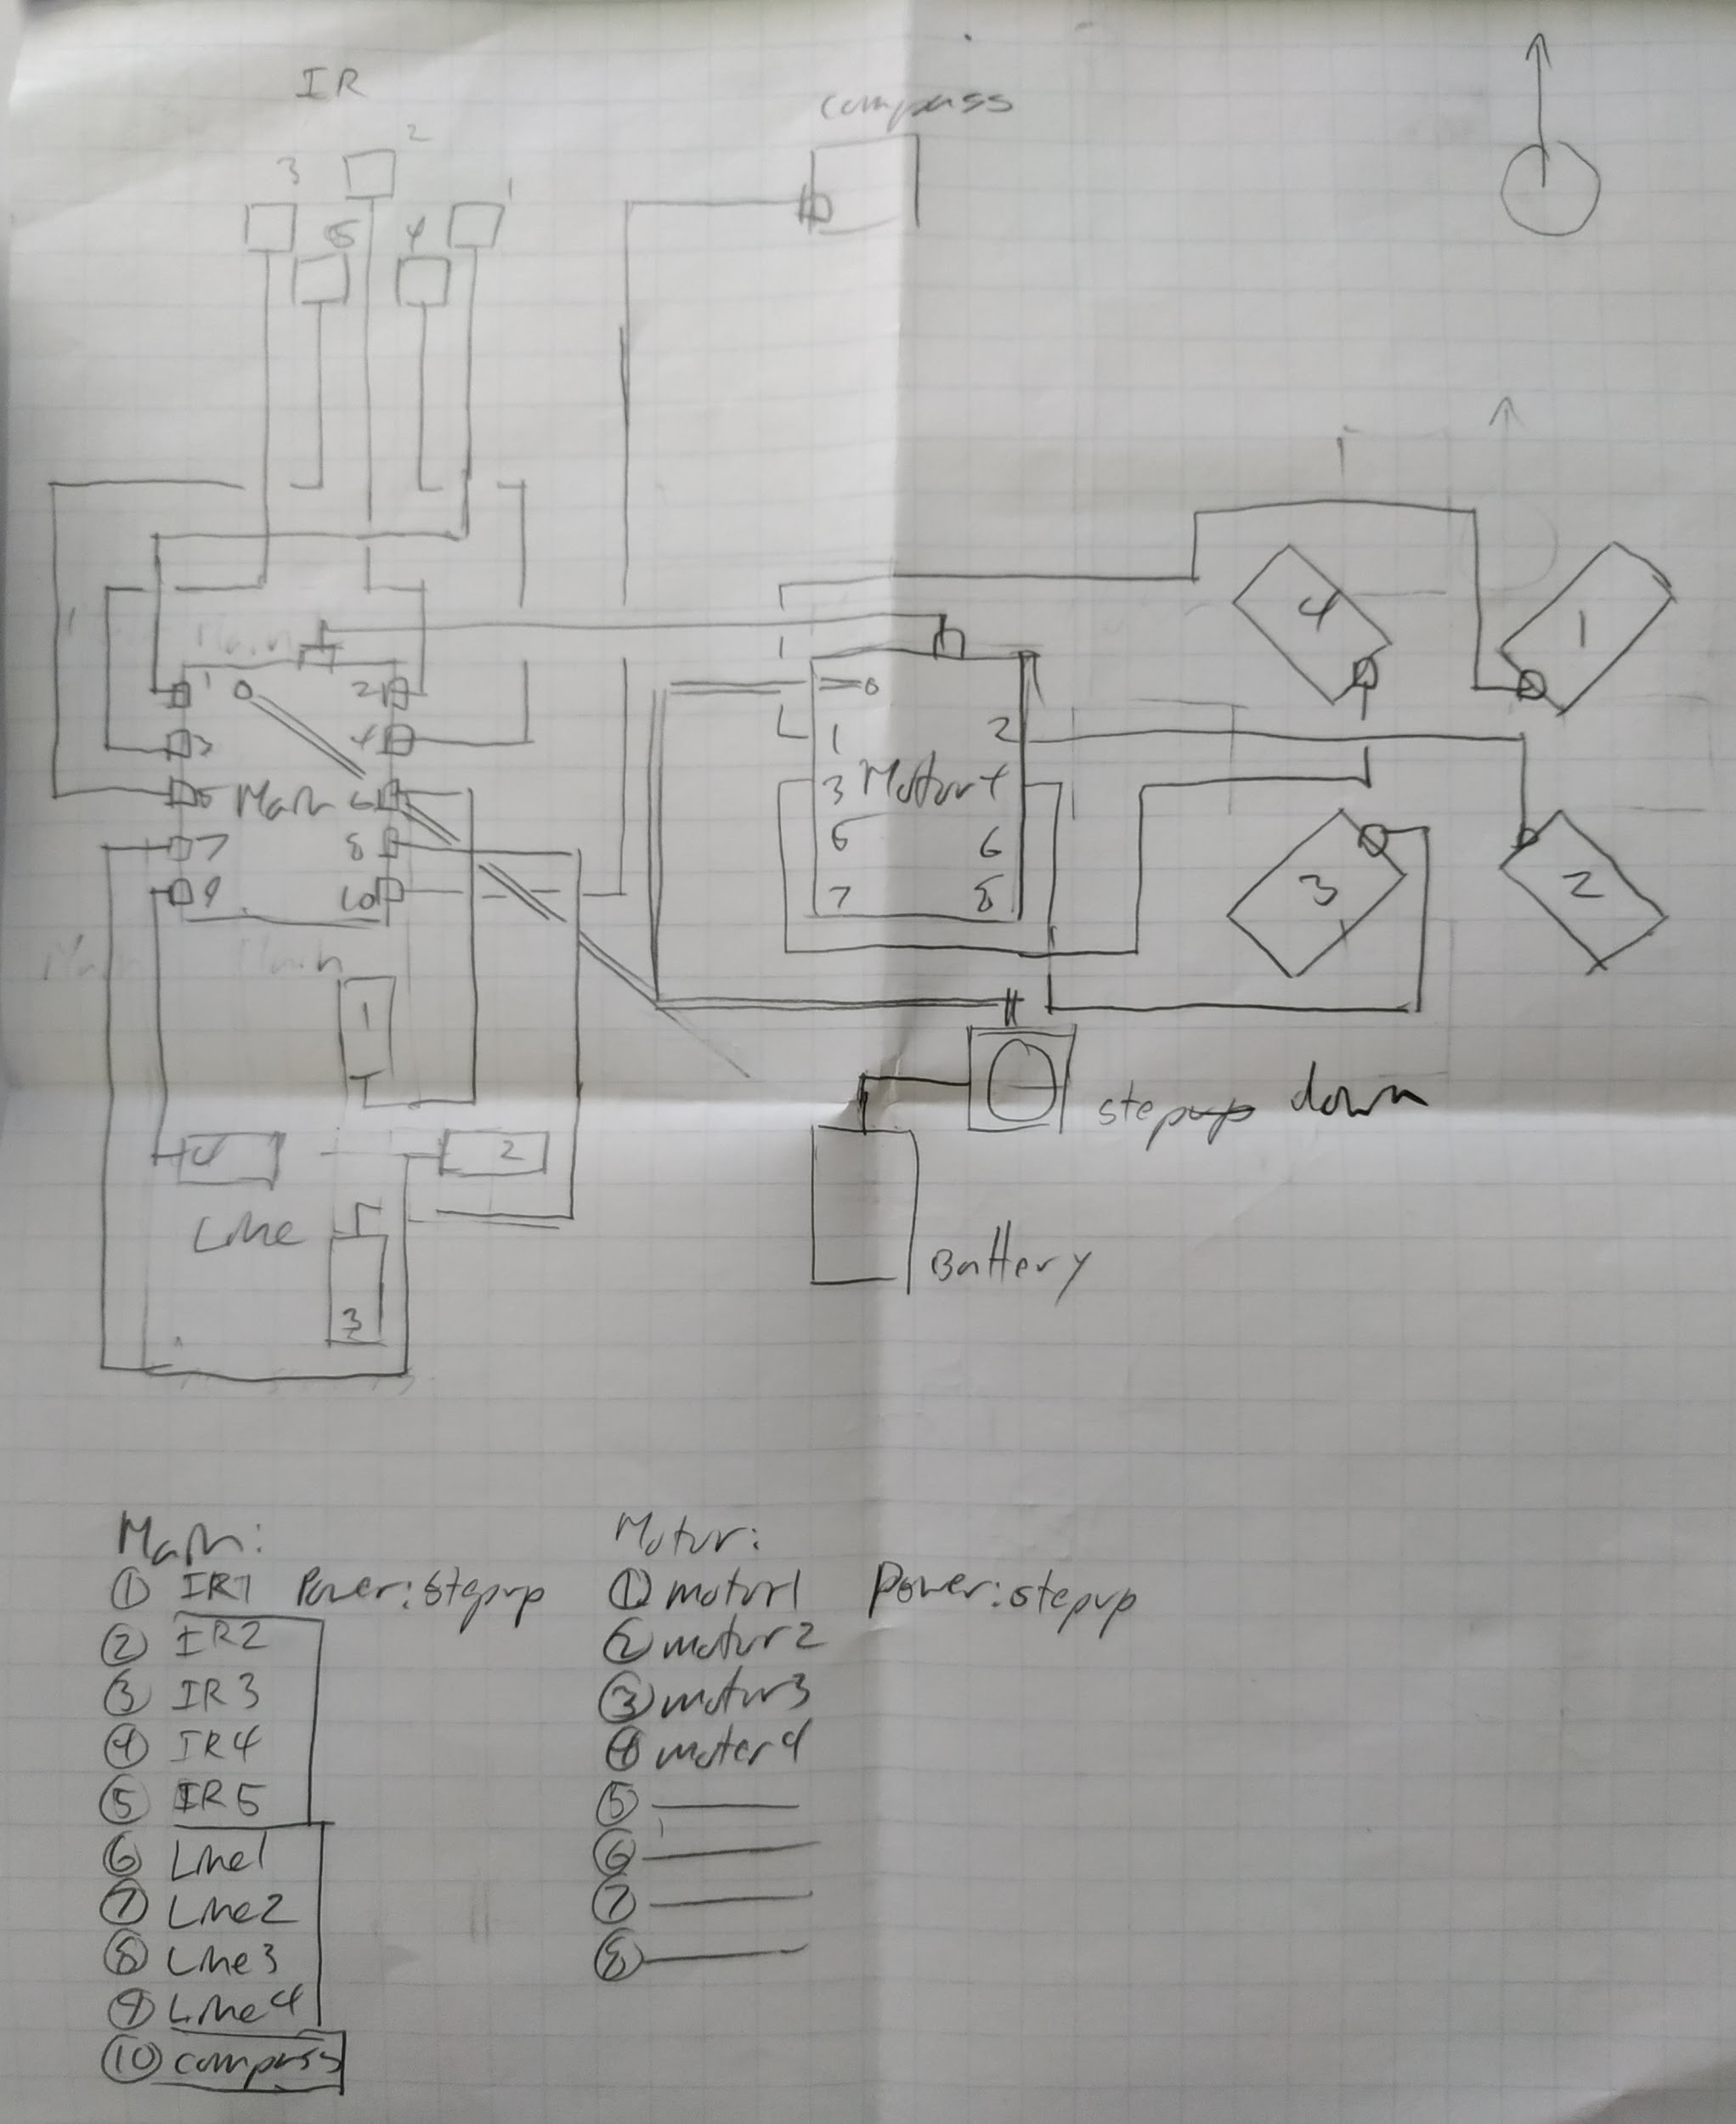 IR
compass
2
3
1
5 4
4
1
1 0 2
3 4
5 Main 6
7 8
9 10
0
1 2
3 Motor 4
5 6
7 8
3
2
1
4 2
Line
3
stepup down
Battery
Main:
① IR1 Power: stepup
② IR2
③ IR3
④ IR4
⑤ IR5
⑥ Line1
⑦ Line2
⑧ Line3
⑨ Line4
⑩ compass
Motor:
① motor1 Power: stepup
② motor2
③ motor3
④ motor4
⑤
⑥
⑦
⑧